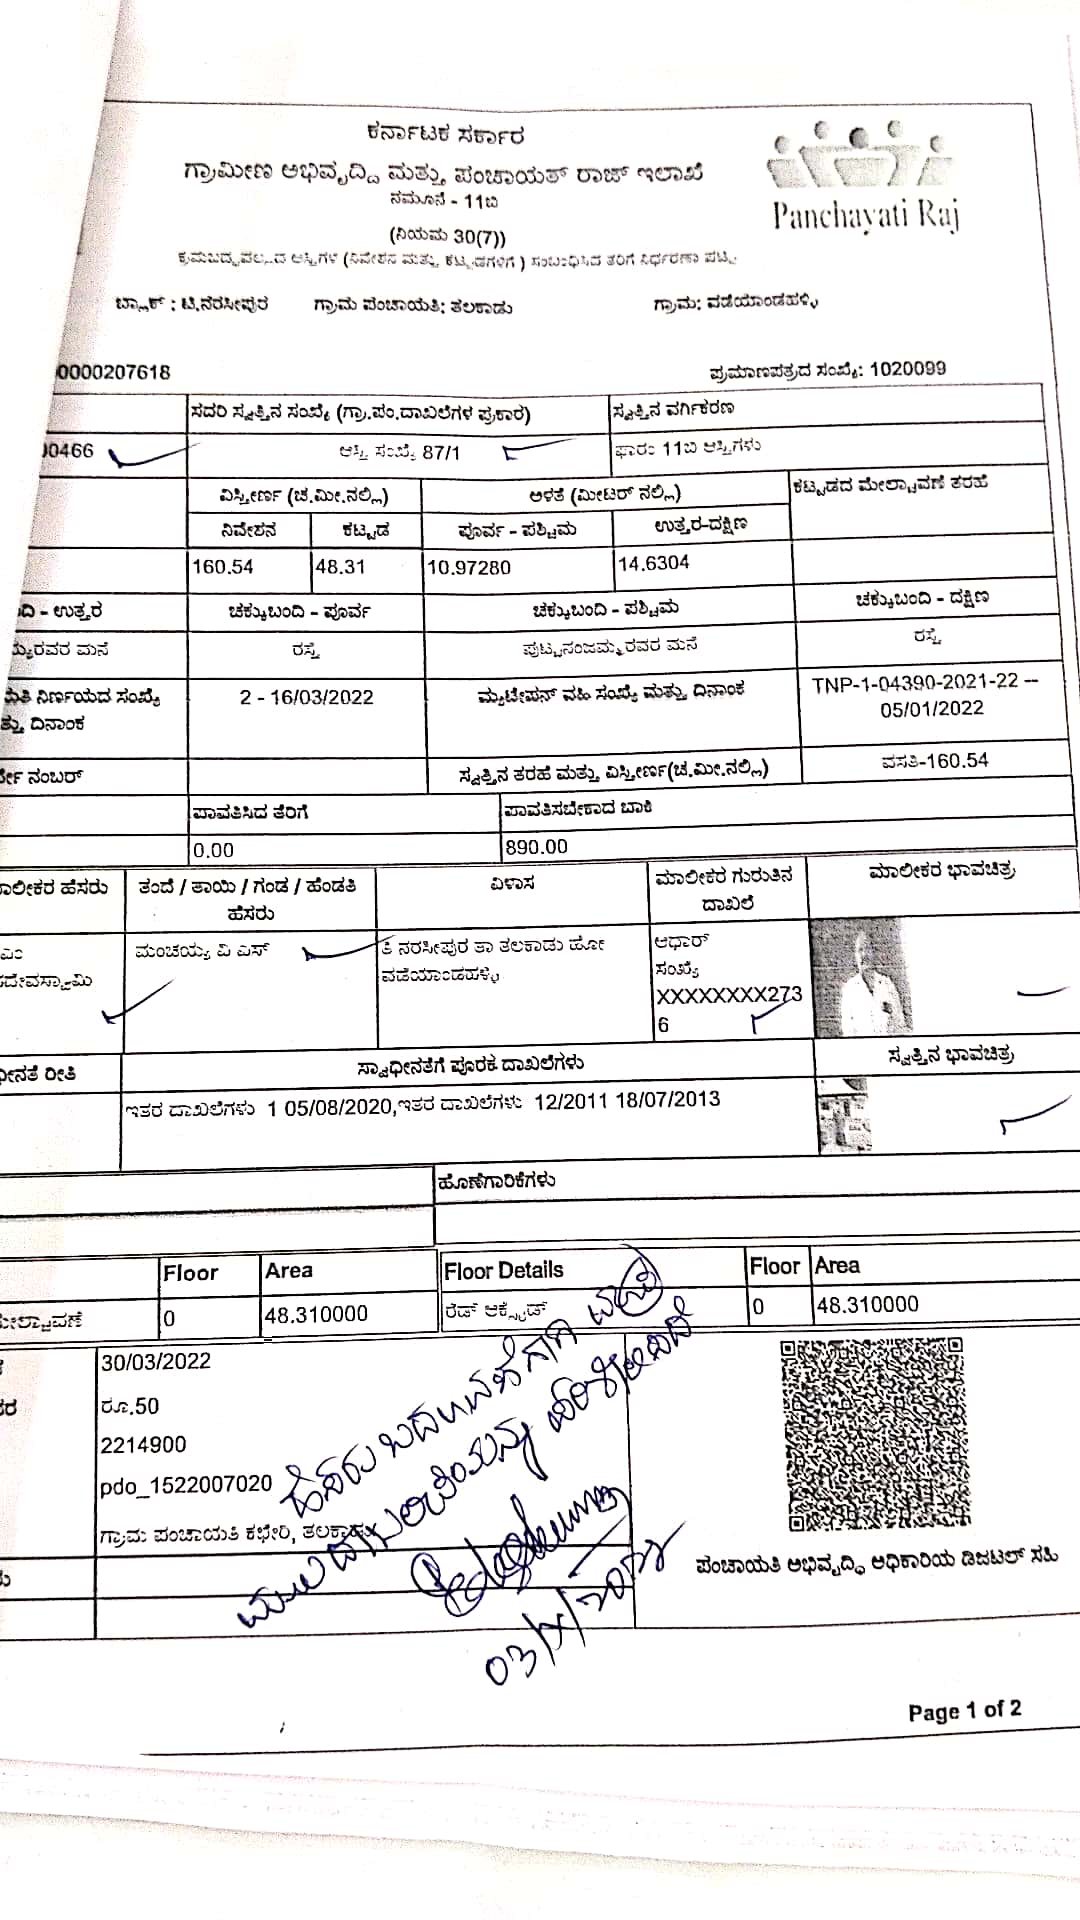 ಕರ್ನಾಟಕ ಸರ್ಕಾರ
ಗ್ರಾಮೀಣ ಅಭಿವೃದ್ದಿ ಮತ್ತು ಪಂಚಾಯತ್ ರಾಜ್ ಇಲಾಖೆ
Panchayati Raj
ನಮೂನೆ - 11ಬಿ
(ನಿಯಮ 30(7))
ಕ್ರಮಬದ್ಧವಲ್ಲದ ಆಸ್ತಿಗಳ (ನಿವೇಶನ ಮತ್ತು ಕಟ್ಟಡಗಳಿಗೆ ) ಸಂಬಂಧಿಸಿದ ತೆರಿಗೆ ನಿರ್ಧರಣಾ ಪಟ್ಟಿ
ಬ್ಲಾಕ್ : ಟಿ.ನರಸೀಪುರ ಗ್ರಾಮ ಪಂಚಾಯತಿ: ತಲಕಾಡು ಗ್ರಾಮ: ವಡೆಯಾಂಡಹಳ್ಳಿ
0000207618 ಪ್ರಮಾಣಪತ್ರದ ಸಂಖ್ಯೆ: 1020099
ಸದರಿ ಸ್ವತ್ತಿನ ಸಂಖ್ಯೆ (ಗ್ರಾ.ಪಂ.ದಾಖಲೆಗಳ ಪ್ರಕಾರ) ಸ್ವತ್ತಿನ ವರ್ಗಿಕರಣ
00466 ಆಸ್ತಿ ಸಂಖ್ಯೆ 87/1 ಫಾರಂ 11ಬಿ ಆಸ್ತಿಗಳು
ವಿಸ್ತೀರ್ಣ (ಚ.ಮೀ.ನಲ್ಲಿ) ಅಳತೆ (ಮೀಟರ್ ನಲ್ಲಿ) ಕಟ್ಟಡದ ಮೇಲ್ಚಾವಣೆ ತರಹೆ
ನಿವೇಶನ ಕಟ್ಟಡ ಪೂರ್ವ - ಪಶ್ಚಿಮ ಉತ್ತರ-ದಕ್ಷಿಣ
160.54 48.31 10.97280 14.6304
ದಿ - ಉತ್ತರ ಚಕ್ಕುಬಂದಿ - ಪೂರ್ವ ಚಕ್ಕುಬಂದಿ - ಪಶ್ಚಿಮ ಚಕ್ಕುಬಂದಿ - ದಕ್ಷಿಣ
ಯ್ಯರವರ ಮನೆ ರಸ್ತೆ ಪುಟ್ಟನಂಜಮ್ಮರವರ ಮನೆ ರಸ್ತೆ
ಮತಿ ನಿರ್ಣಯದ ಸಂಖ್ಯೆ 2 - 16/03/2022 ಮ್ಯುಟೇಷನ್ ವಹಿ ಸಂಖ್ಯೆ ಮತ್ತು ದಿನಾಂಕ TNP-1-04390-2021-22 --
ತ್ತು ದಿನಾಂಕ 05/01/2022
ರ್ವೇ ನಂಬರ್ ಸ್ವತ್ತಿನ ತರಹೆ ಮತ್ತು ವಿಸ್ತೀರ್ಣ(ಚ.ಮೀ.ನಲ್ಲಿ) ವಸತಿ-160.54
ಪಾವತಿಸಿದ ತೆರಿಗೆ ಪಾವತಿಸಬೇಕಾದ ಬಾಕಿ
0.00 890.00
ಾಲೀಕರ ಹೆಸರು ತಂದೆ / ತಾಯಿ / ಗಂಡ / ಹೆಂಡತಿ ವಿಳಾಸ ಮಾಲೀಕರ ಗುರುತಿನ ಮಾಲೀಕರ ಭಾವಚಿತ್ರ
ಹೆಸರು ದಾಖಲೆ
ಎಂ ಮಂಚಯ್ಯ ವಿ ಎಸ್ ತಿ ನರಸೀಪುರ ತಾ ತಲಕಾಡು ಹೋ ಆಧಾರ್
ದೇವಸ್ವಾಮಿ ವಡೆಯಾಂಡಹಳ್ಳಿ ಸಂಖ್ಯೆ
XXXXXXXX273
6
ಧೀನತೆ ರೀತಿ ಸ್ವಾಧೀನತೆಗೆ ಪೂರಕ ದಾಖಲೆಗಳು ಸ್ವತ್ತಿನ ಭಾವಚಿತ್ರ
ಇತರ ದಾಖಲೆಗಳು 1 05/08/2020,ಇತರ ದಾಖಲೆಗಳು 12/2011 18/07/2013
ಹೊಣೆಗಾರಿಕೆಗಳು
Floor Area Floor Details Floor Area
ಮೇಲ್ಚಾವಣೆ 0 48.310000 ರೆಡ್ ಆಕ್ಸೈಡ್ 0 48.310000
30/03/2022
ರೂ.50
2214900
pdo_1522007020
ಗ್ರಾಮ ಪಂಚಾಯತಿ ಕಛೇರಿ, ತಲಕಾಡು
ಹೆಸರು ಬದಲಾವಣೆಗಾಗಿ
ಮೂಲ ದಾಖಲಾತಿಯನ್ನು ಪರಿಶೀಲಿಸಿದೆ
ಪಂಚಾಯತಿ ಅಭಿವೃದ್ಧಿ ಅಧಿಕಾರಿಯ ಡಿಜಿಟಲ್ ಸಹಿ
Page 1 of 2